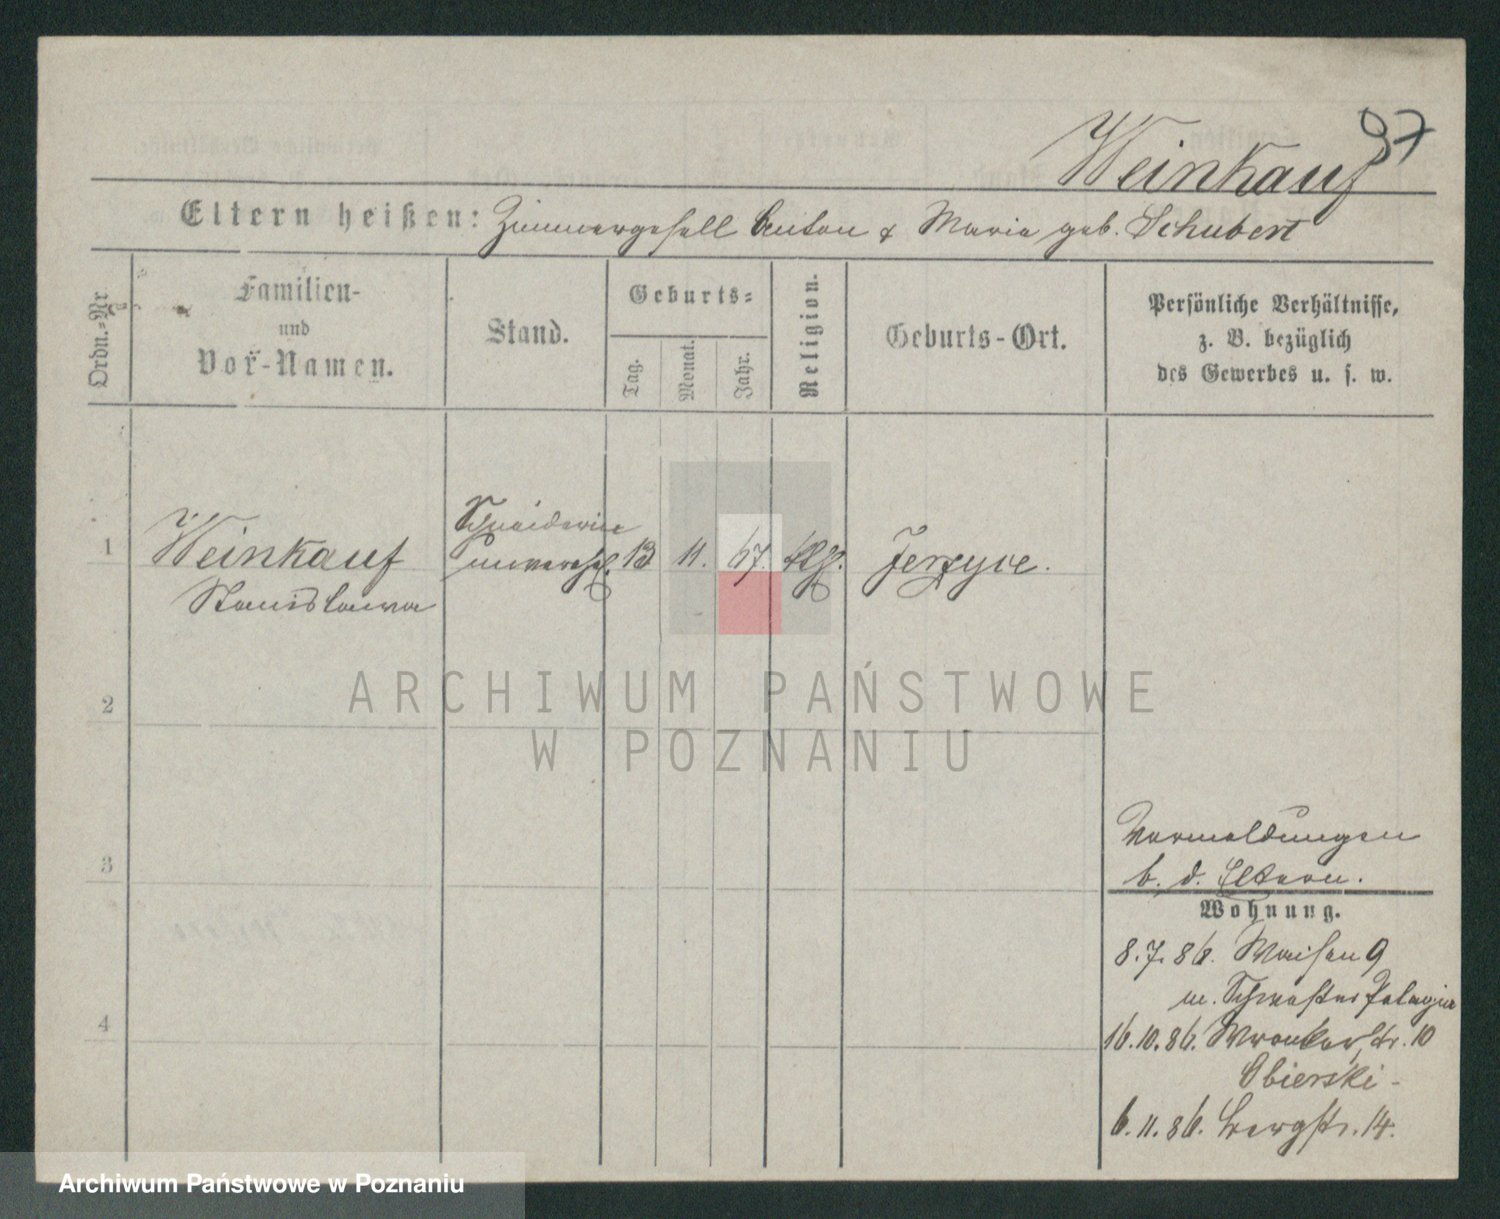 97
Weinkauf
Eltern heißen: Zimmergesell Anton & Maria geb. Schubert
Ordn.-Nr.
Familien-
und
Vor-Namen.
Stand.
Geburts-
Tag.
Monat.
Jahr.
Religion.
Geburts-Ort.
Persönliche Verhältnisse,
z. B. bezüglich
des Gewerbes u. s. w.
1
Weinkauf
Stanislawa
Schneiderin
unverehel.
13
11.
67.
kth.
Jerzyce.
2
3
4
Vormeldungen
b. d. Eltern.
Wohnung.
8.7.86. Waisen 9
m. Schwester Pelagia
16.10.86. Wronkerstr. 10
Obierski -
6.11.86. Bergstr. 14.
ARCHIWUM PAŃSTWOWE
W POZNANIU
Archiwum Państwowe w Poznaniu